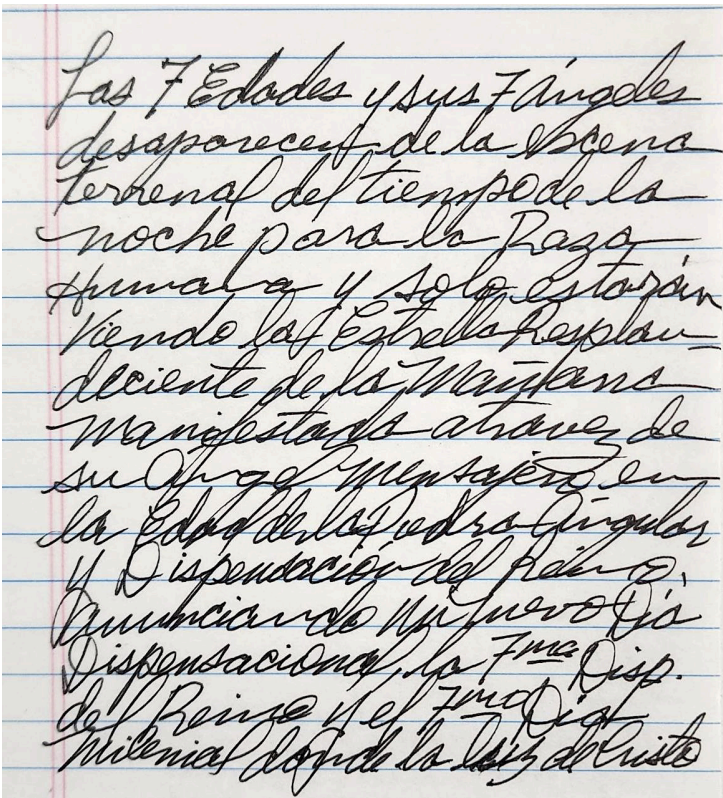 Las 7 Edades y sus 7 ángeles
desaparecen de la escena
terrenal del tiempo de la
noche para la Raza
Humana y solo estarán
Viendo la Estrella Resplan-
deciente de la Mañana
Manifestada atravez de
su Angel Mensajero en
la Edad de la Piedra Angular
y Dispensación del Reino,
Anunciando un nuevo Día
Dispensacional, la 7ma Disp.
del Reino y el 7mo Día
Milenial donde la luz de Cristo